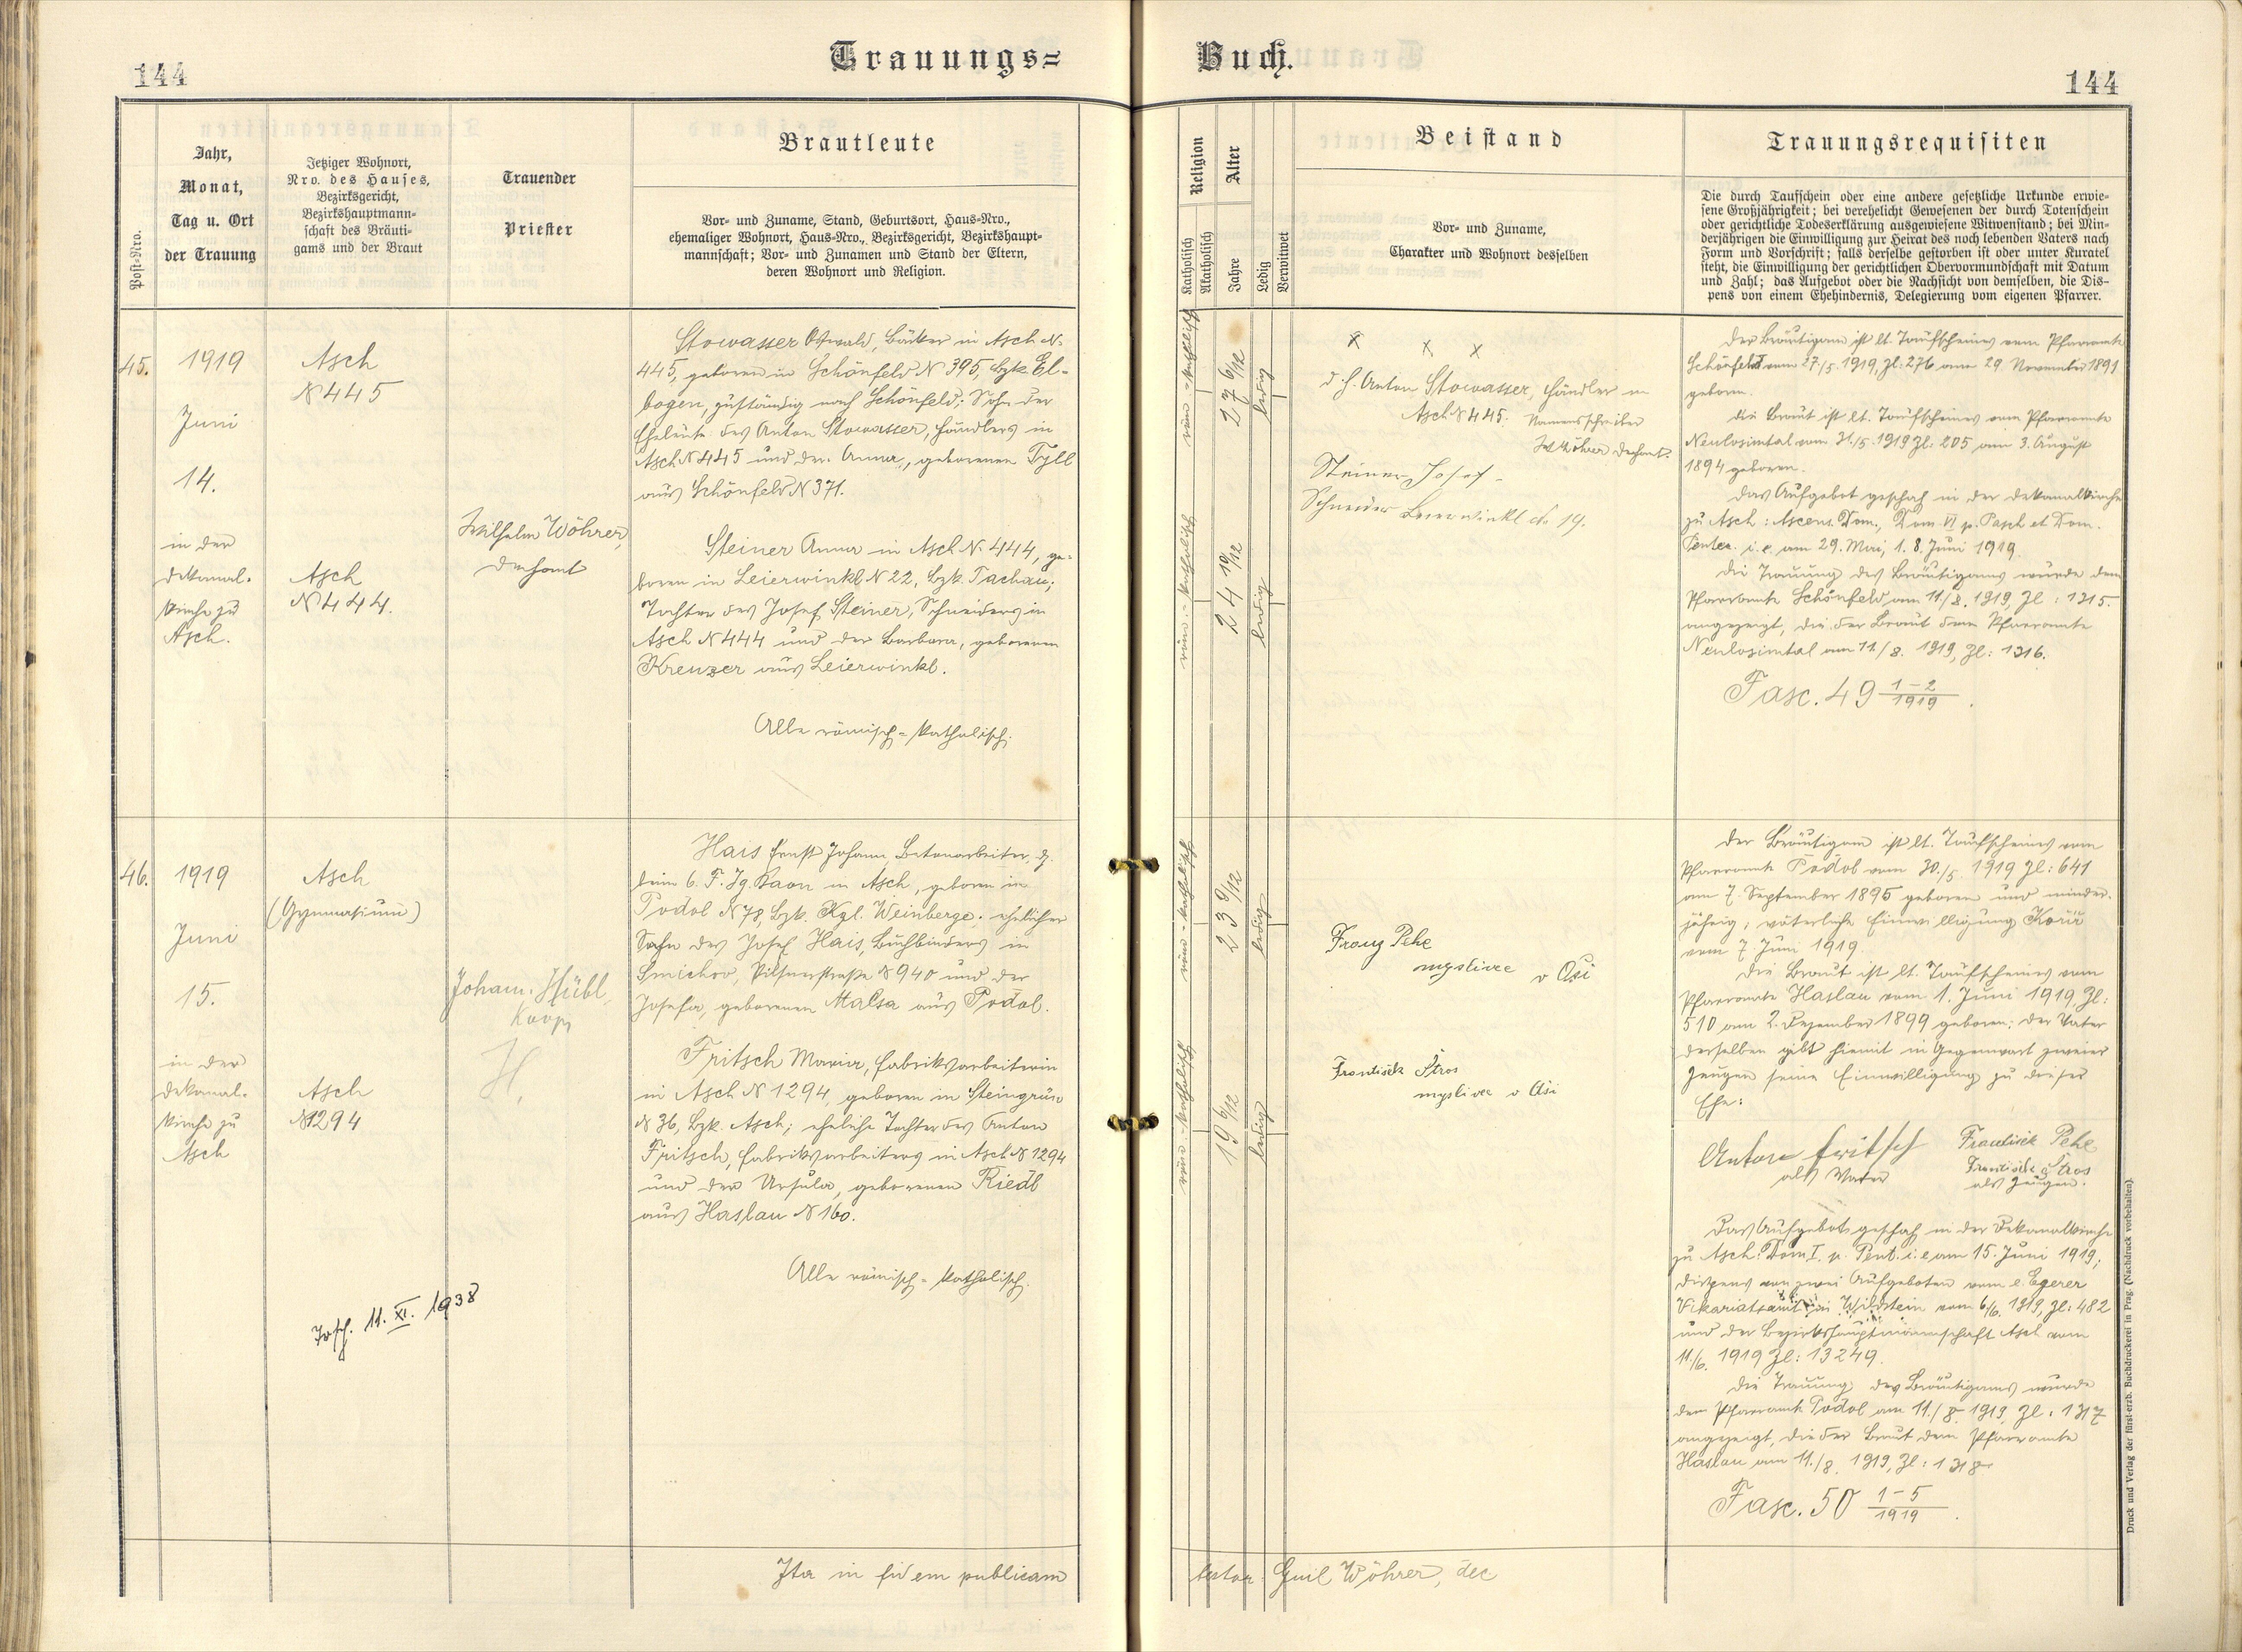 144
Trauungs=
Buch.
144
Post-Nro.
Jahr,
Monat,
Tag u. Ort
der Trauung
Jetziger Wohnort,
Nro. des Hauses,
Bezirksgericht,
Bezirkshauptmann-
schaft des Bräuti-
gams und der Braut
Trauender
Priester
Brautleute
Vor- und Zuname, Stand, Geburtsort, Haus-Nro.,
ehemaliger Wohnort, Haus-Nro., Bezirksgericht, Bezirkshaupt-
mannschaft; Vor- und Zunamen und Stand der Eltern,
deren Wohnort und Religion.
Religion
Katholisch
Akatholisch
Alter
Jahre
Ledig
Verwitwet
Beistand
Vor- und Zuname,
Charakter und Wohnort desselben
Trauungsrequisiten
Die durch Taufschein oder eine andere gesetzliche Urkunde erwie-
sene Großjährigkeit; bei verehelicht Gewesenen der durch Totenschein
oder gerichtliche Todeserklärung ausgewiesene Witwenstand; bei Min-
derjährigen die Einwilligung zur Heirat des noch lebenden Vaters nach
Form und Vorschrift; falls derselbe gestorben ist oder unter Kuratel
steht, die Einwilligung der gerichtlichen Obervormundschaft mit Datum
und Zahl; das Aufgebot oder die Nachsicht von demselben, die Dis-
pens von einem Ehehindernis, Delegierung vom eigenen Pfarrer.
45.
1919
Juni
14.
in der
Dekanal-
kirche zu
Asch.
Asch
N 445
Asch
N 444.
Wilhelm Wöhrer,
Dechant
Stowasser Oswald, Bäcker in Asch N.
445, geboren in Schönfeld N 395, Bzk. El-
bogen, zuständig nach Schönfeld; Sohn der
Eheleute des Anton Stowasser, Händlers in
Asch N 445 und der Anna, geborenen Tyll
aus Schönfeld N 371.
Steiner Anna in Asch N. 444, ge-
boren in Leierwinkl N 22, Bzk. Tachau;
Tochter des Josef Steiner, Schneiders in
Asch N 444 und der Barbara, geborenen
Kreuzer aus Leierwinkl.
Alle römisch-katholisch.
röm.-katholisch
27 6/12
ledig
röm.-katholisch
24 10/12
ledig
x x x
d. h. Anton Stowasser, Händler in
Asch N 445. Namensschreiber
W Wöhrer Dechant.
Steiner Josef
Schneider Leierwinkl No 19.
Der Bräutigam ist lt. Taufscheines vom Pfarramte
Schönfeld vom 27/5. 1919, Zl: 276 am 29. November 1891
geboren.
Die Braut ist lt. Taufscheines vom Pfarramte
Neulosimtal vom 31./5. 1919 Zl: 205 am 3. August
1894 geboren.
Das Aufgebot geschah in der Dekanalkirche
zu Asch: Ascens. Dom., Dom VI p. Pasch et Dom.
Pentec. i. e. am 29. Mai, 1. 8. Juni 1919.
Die Trauung des Bräutigams wurde dem
Pfarramte Schönfeld am 11./8. 1919, Zl: 1315.
angezeigt, die der Braut dem Pfarramte
Neulosimtal am 11./8. 1919, Zl: 1316.
Fasc. 49 1-2/1919.
46.
1919
Juni
15.
in der
Dekanal-
kirche zu
Asch
Asch
(Gymnasium)
Asch
N 1294
Johann Hübl,
Koop.
H.
Hais Ernst Johann, Betonarbeiter, z.
beim 6. F. Jg. Baon in Asch, geboren in
Podol N 78, Bzk. Kgl. Weinberge; ehelicher
Sohn des Josef Hais, Buchbinders in
Smichov, Pilsnerstraße N 940 und der
Josefa, geborenen Malsa aus Podol.
Fritsch Maria, Fabriksarbeiterin
in Asch N 1294, geboren in Steingrün
N 36, Bzk. Asch; eheliche Tochter des Anton
Fritsch, Fabriksarbeiters in Asch N 1294
und der Ursula, geborenen Riedl
aus Haslau N 160.
Alle römisch-katholisch.
11. XI. 1938
röm.-katholisch
23 9/12
ledig
röm.-katholisch
19 6/12
ledig
Franz Pehe
myslivec v Aši
František Štros
myslivec v Aši
Der Bräutigam ist lt. Taufscheines vom
Pfarramte Podol vom 30./5. 1919 Zl: 641
am 7. September 1895 geboren und minder-
jährig, väterliche Einwilligung
vom 7. Juni 1919.
Die Braut ist lt. Taufscheines vom
Pfarramte Haslau vom 1. Juni 1919, Zl:
510 am 2. Dezember 1899 geboren; der Vater
derselben gibt hiemit in Gegenwart zweier
Zeugen seine Einwilligung zu dieser
Ehe:
Anton Fritsch
als Vater
František Pehe
František Štros
als Zeugen.
Das Aufgebot geschah in der Dekanalkirche
zu Asch: Dom I. p. Pent. i. e am 15. Juni 1919;
Dispens von zwei Aufgeboten vom e. Egerer
Vikariatsamt in Wildstein vom 6/6. 1919, Zl: 482
und der Bezirkshauptmannschaft Asch vom
11./6. 1919 Zl: 13249.
Die Trauung des Bräutigams wurde
dem Pfarramte Podol am 11./8. 1919, Zl: 1317
angezeigt, die der Braut dem Pfarramte
Haslau am 11./8. 1919, Zl: 1318
Fasc. 50 1-5/1919.
Ita in fidem publicam
testor Guil Wöhrer, dec
Druck und Verlag der fürst-erzb. Buchdruckerei in Prag. (Nachdruck vorbehalten).